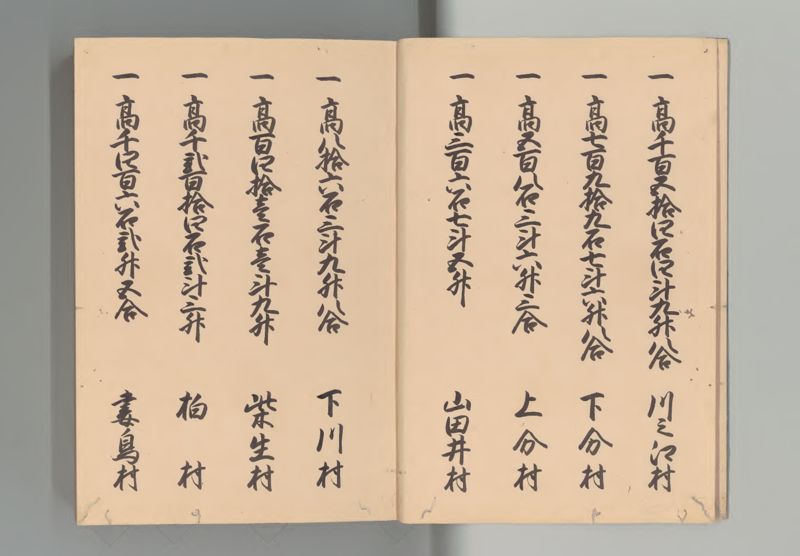 一 高千百五拾四石四斗九升八合 川之江村
一 高七百九拾九石七斗六升八合 下分村
一 高五百八石三斗六升三合 上分村
一 高三百六石七斗五升 山田井村
一 高八拾六石三斗九升八合 下川村
一 高百四拾壱石壱斗九升 柴生村
一 高千弐百拾四石弐斗三升 柏村
一 高千四百六石弐升五合 妻鳥村